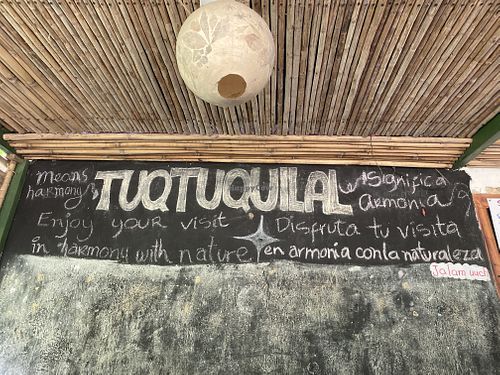 means TUQTUQUILAL Significa
harmony Armonía
Enjoy your visit Disfruta tu visita
in harmony with nature en armonía con la naturaleza
Jalam uuch